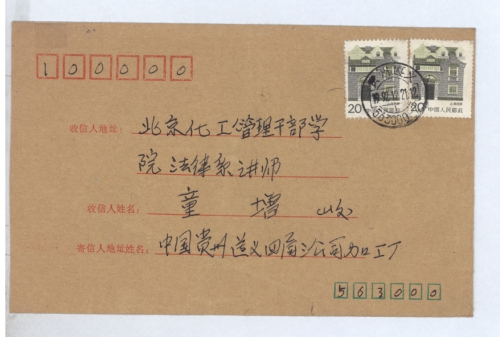 100000
20 中国人民邮政
20 中国人民邮政
563000
收信人地址: 北京化工管理干部学
院法律系讲师
收信人姓名: 童增 收
寄信人地址姓名: 中国贵州遵义四育公司加工厂
563000